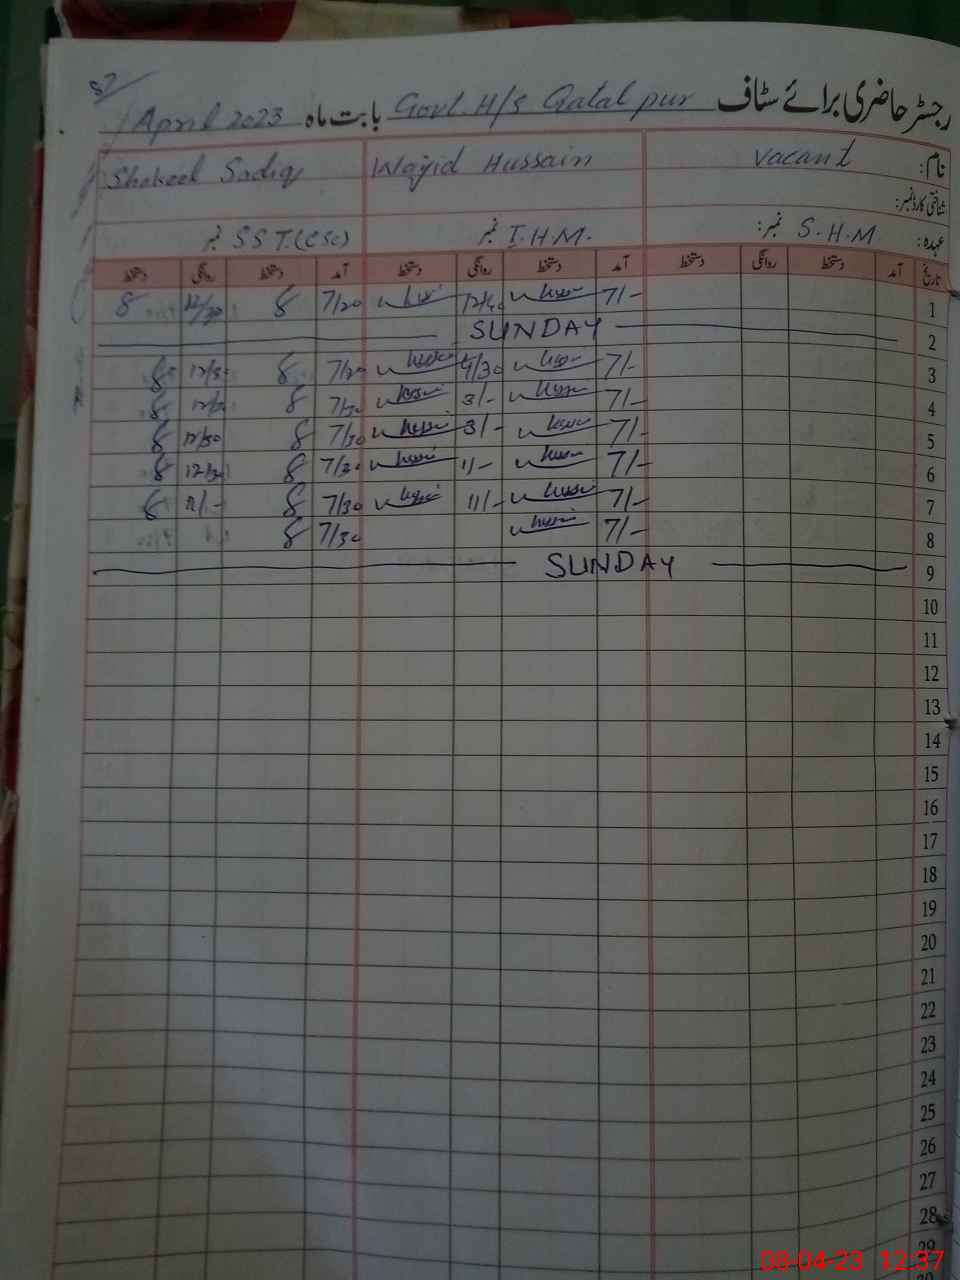 رجسٹر حاضری برائے سٹاف Govt. H/s Qatal pur بابت ماہ April 2023
نام: Vacant Wajid Hussain Shakeel Sadiq
شناختی کارڈ نمبر:
عہدہ: S.H.M نمبر: I.H.M. نمبر SST.(CSc) نمبر
تاریخ آمد دستخط روانگی دستخط آمد دستخط روانگی دستخط آمد دستخط روانگی دستخط
1 7/- 12/40 7/20 8 12/30 8
2 SUNDAY
3 7/- 4/30 7/20 8 12/30 8
4 7/- 3/- 7/30 8 12/30 8
5 7/- 3/- 7/30 8 12/30 8
6 7/- 1/- 7/30 8 12/30 8
7 7/- 11/- 7/30 8 11/- 8
8 7/- 7/30 8
9 SUNDAY
10
11
12
13
14
15
16
17
18
19
20
21
22
23
24
25
26
27
28
29
08-04-23 12:37